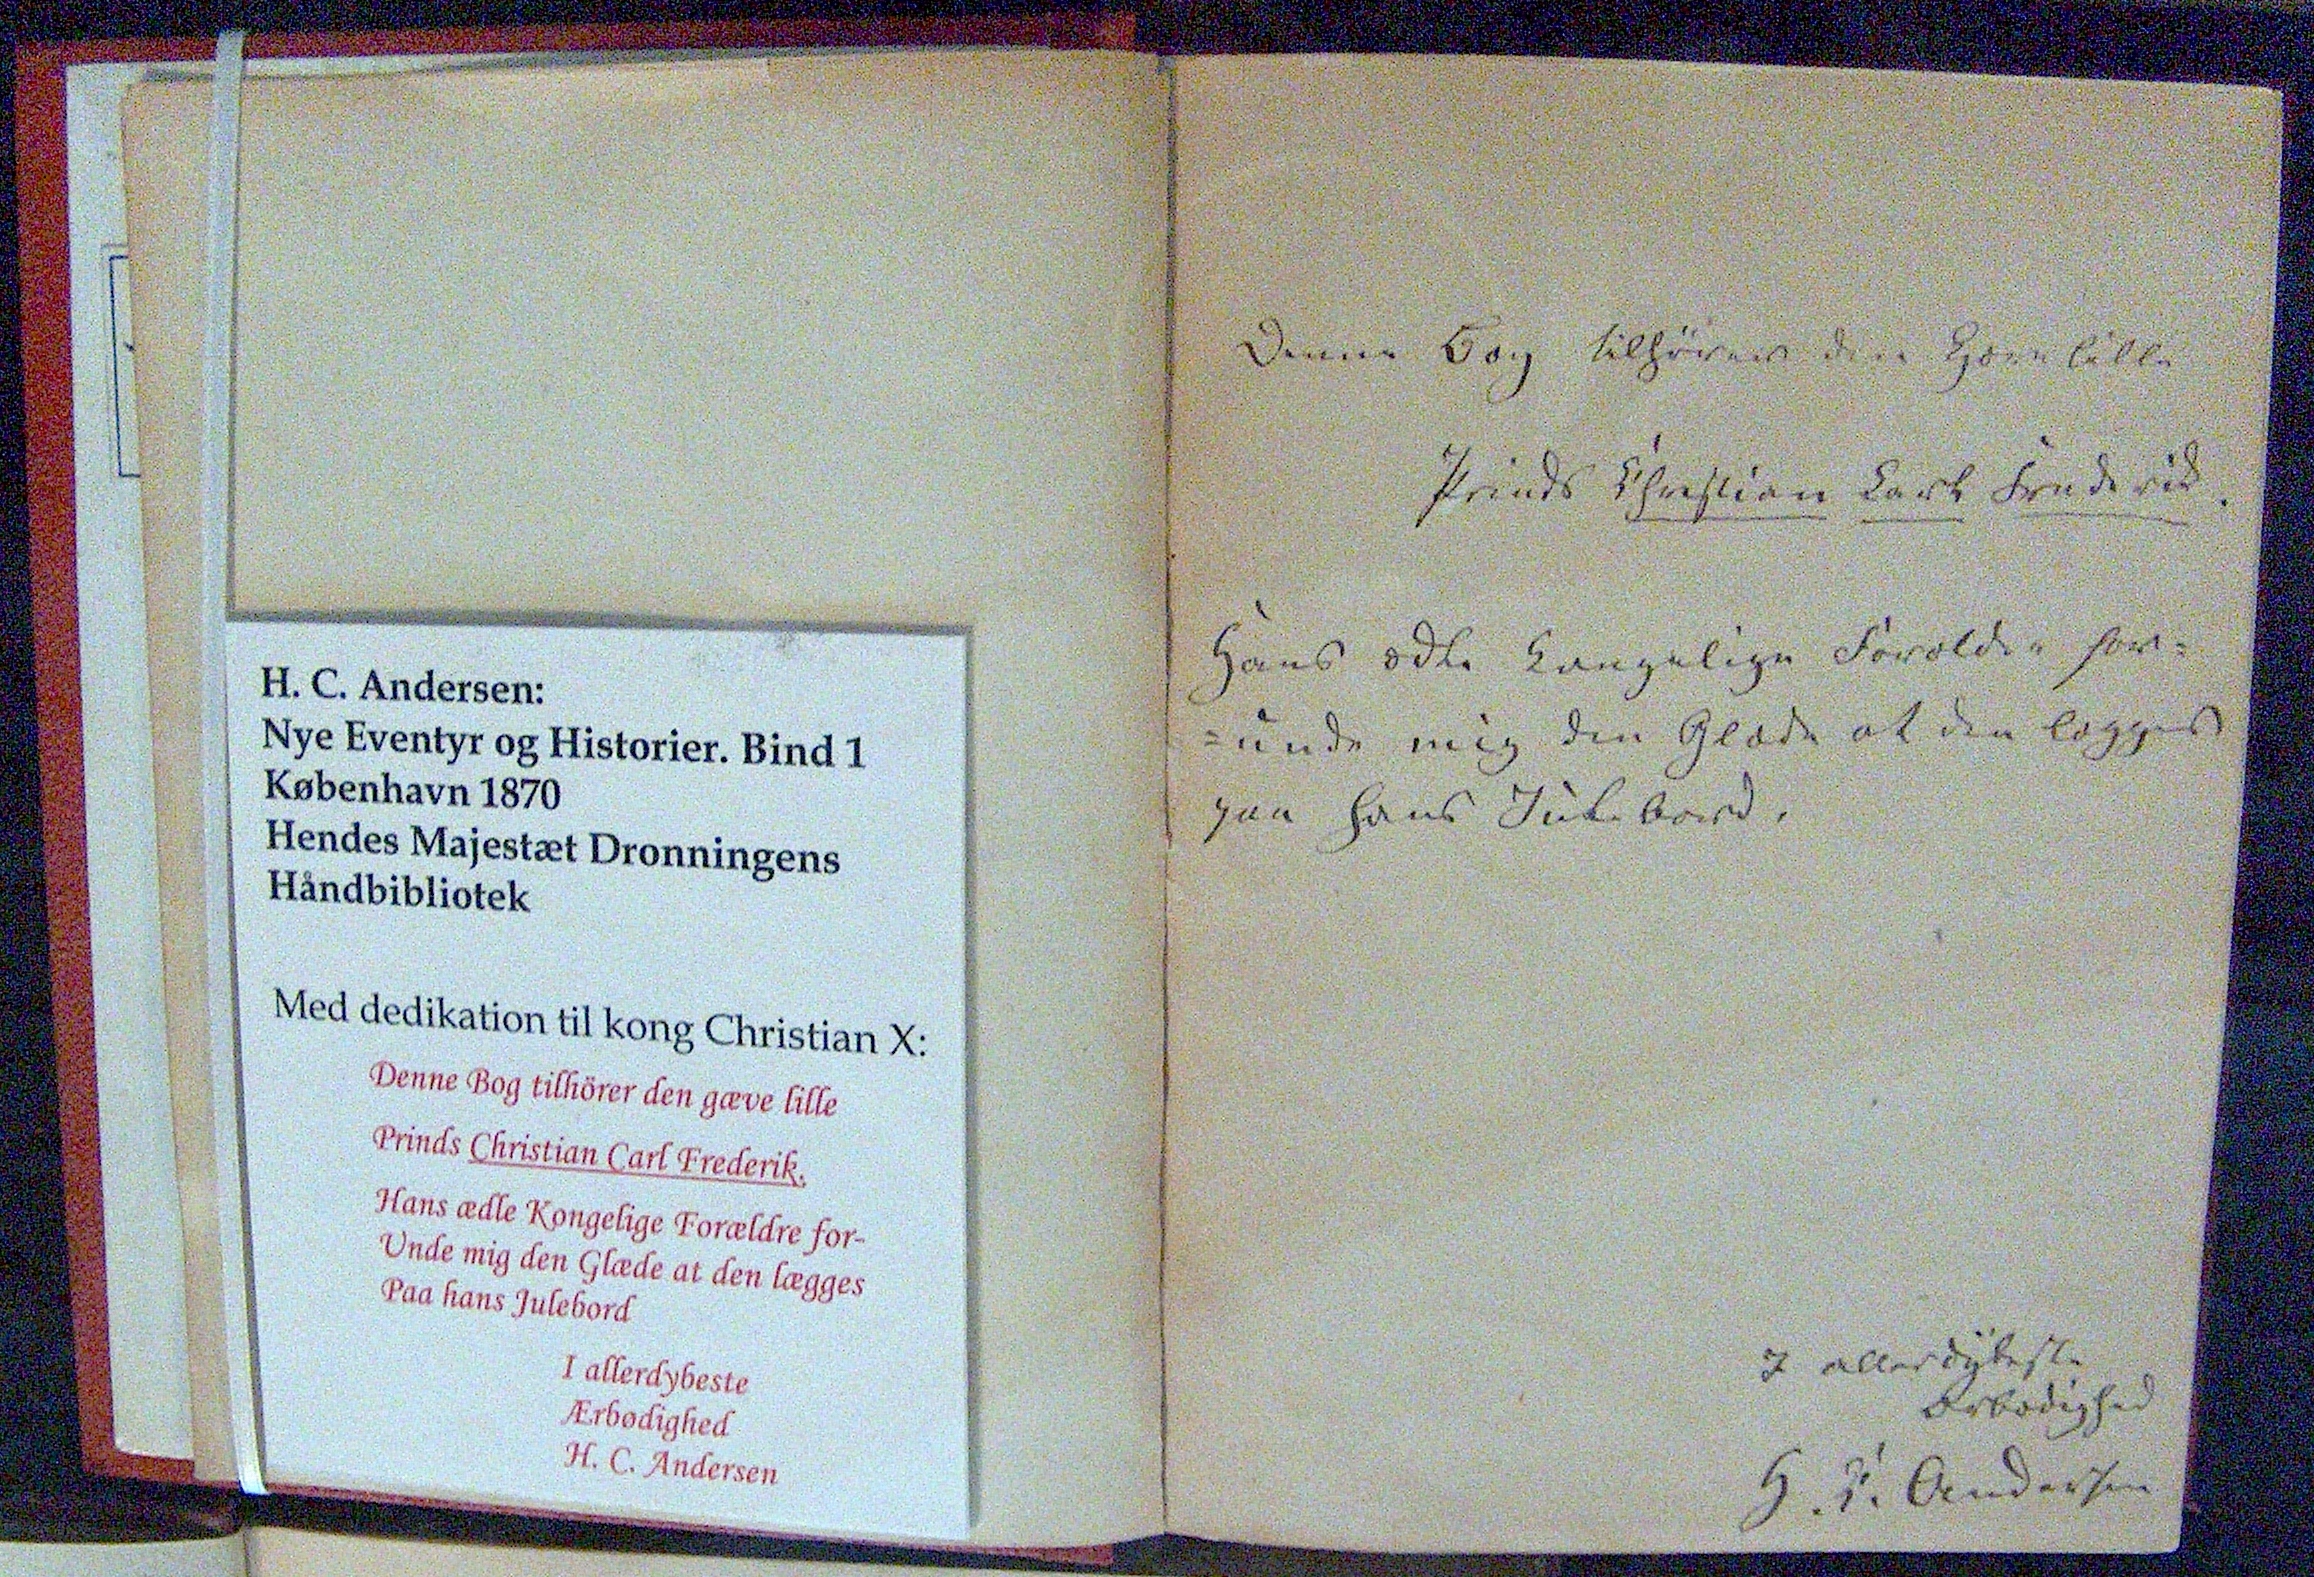 H. C. Andersen:
Nye Eventyr og Historier. Bind 1
København 1870
Hendes Majestæt Dronningens
Håndbibliotek
Med dedikation til kong Christian X:
Denne Bog tilhörer den gæve lille
Prinds Christian Carl Frederik.
Hans ædle Kongelige Forældre for-
Unde mig den Glæde at den lægges
Paa hans Julebord
I allerdybeste
Ærbødighed
H. C. Andersen
Denne Bog tilhörer den lille
Prinds Christian Carl Frederik.
Hans ædle Kongelige Forældre for=
=unde mig den Glæde at den lægges
paa hans Julebord.
I allerdybeste
Ærbødighed
H. C. Andersen